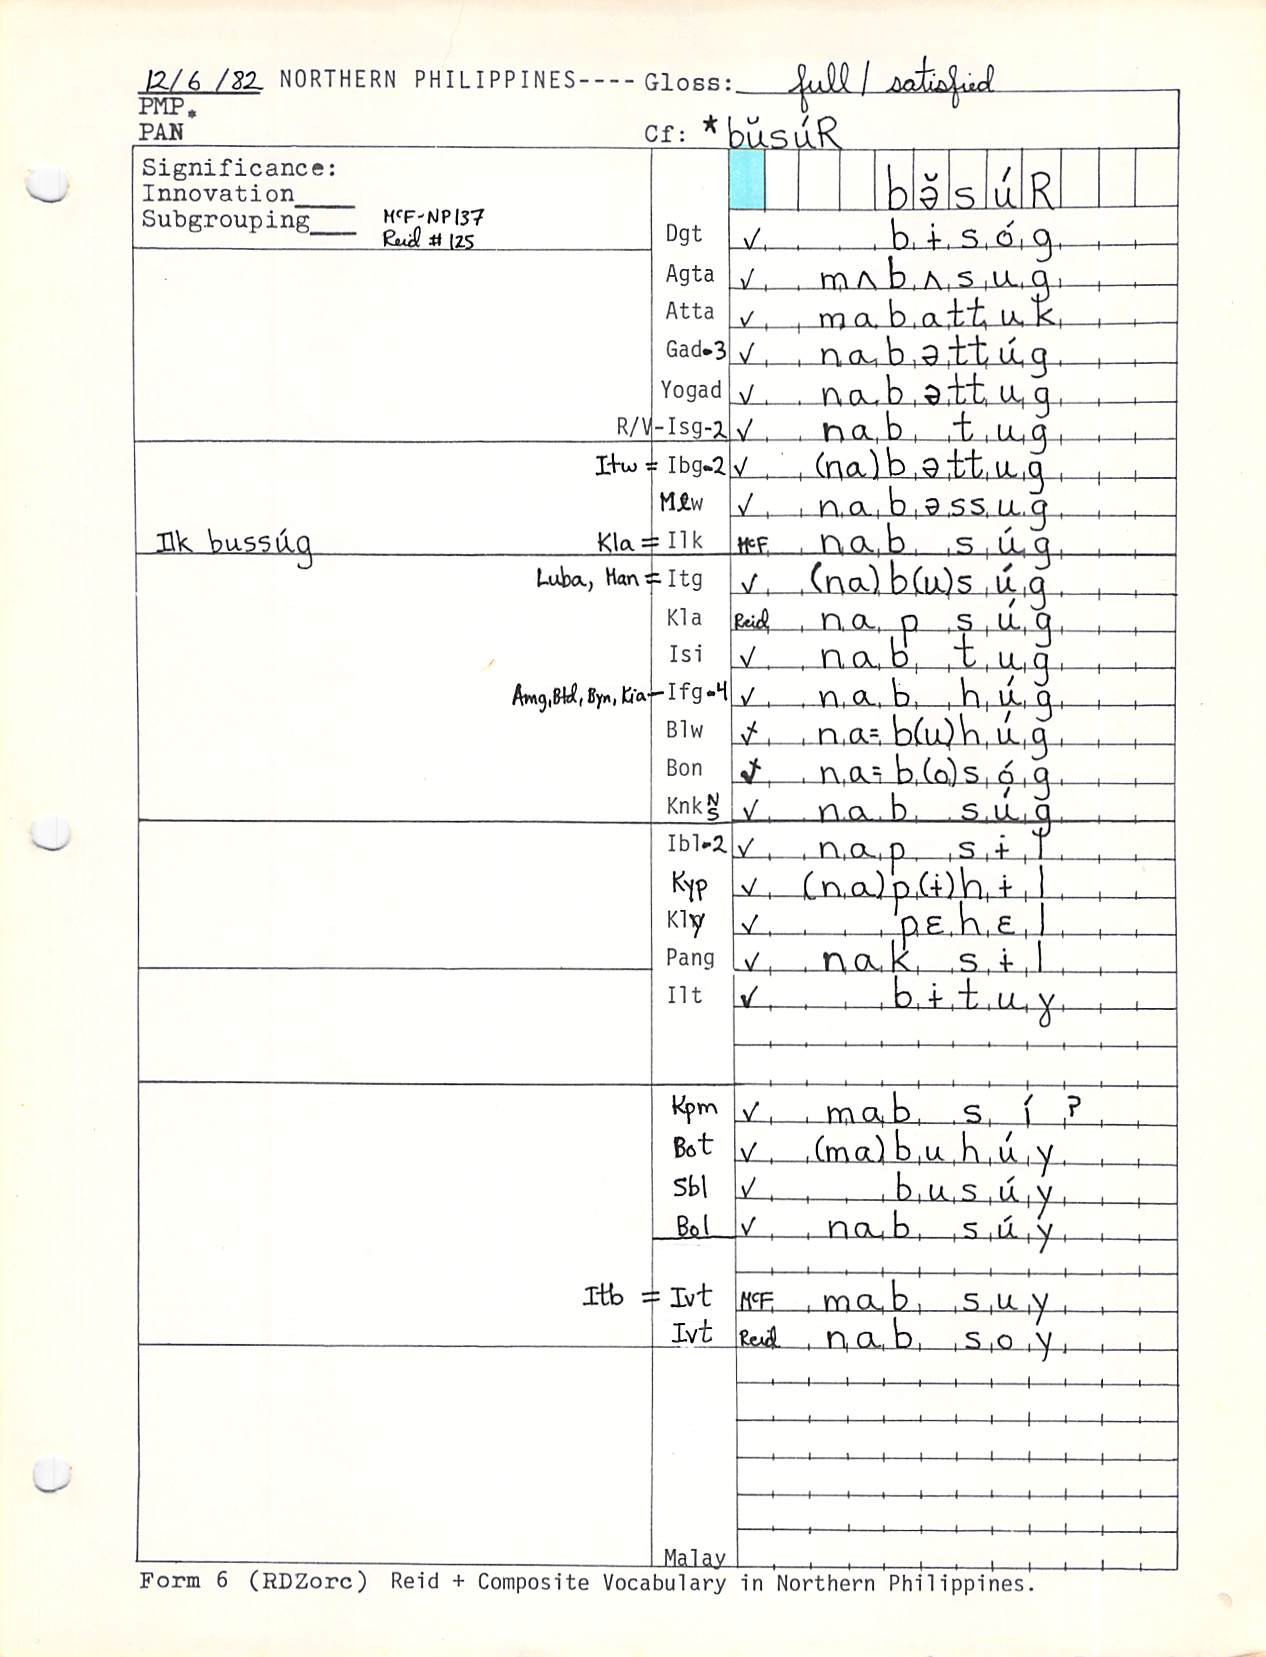 12/6/82 NORTHERN PHILIPPINES---- Gloss: full / satisfied
PMP.
PAN Cf: *bŭsúR
Significance: bə̆súR
Innovation____
Subgrouping____ McF-NP137
Reid # 125
Dgt ✓ bɨsóg
Agta ✓ mʌbʌsug
Atta ✓ mabattuk
Gad-3 ✓ nabəttúg
Yogad ✓ nabəttug
R/V-Isg-2 ✓ nab tug
Itw = Ibg-2 ✓ (na)bəttug
Mlw ✓ nabəssug
Ilk bussúg Kla = Ilk McF nab súg
Luba, Han = Itg ✓ (na)b(u)súg
Kla Reid nap súg
Isi ✓ nab tug
Amg, Btd, Byn, Kia - Ifg-4 ✓ nab húg
Blw ✓ na=b(u)húg
Bon ✓ na=b(o)sóg
Knk N S ✓ nab súg
Ibl-2 ✓ nap sɨl
Kyp ✓ (na)p(ɨ)hɨl
Kly ✓ pɛhɛl
Pang ✓ nak sɨl
Ilt ✓ bɨtuy
Kpm ✓ mab sí?
Bot ✓ (ma)buhúy
Sbl ✓ busúy
Bol ✓ nab súy
Itb = Ivt McF mab suy
Ivt Reid nab soy
Malay
Form 6 (RDZorc) Reid + Composite Vocabulary in Northern Philippines.